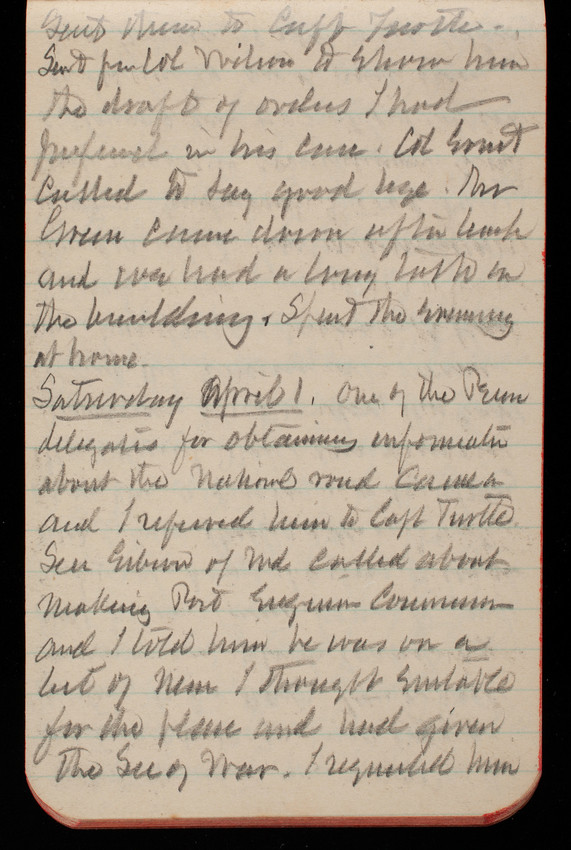 Sent them to Capt Turtle.
Sent for Col Wilson to show him
the draft of orders I had
prepared in his case. Col Grant
called to say good bye. Mr
Green came down after lunch
and we had a long talk on
the building. Spent the evening
at home.
Saturday April 1. One of the Penn
delegates for obtaining informatn
about the National road came in
and I referred him to Capt Turtle.
Sen Gibson of Md called about
making Port Engineer Commn
and I told him he was on a
list of men I thought suitable
for the place and had given
the Sec of War. I requested him